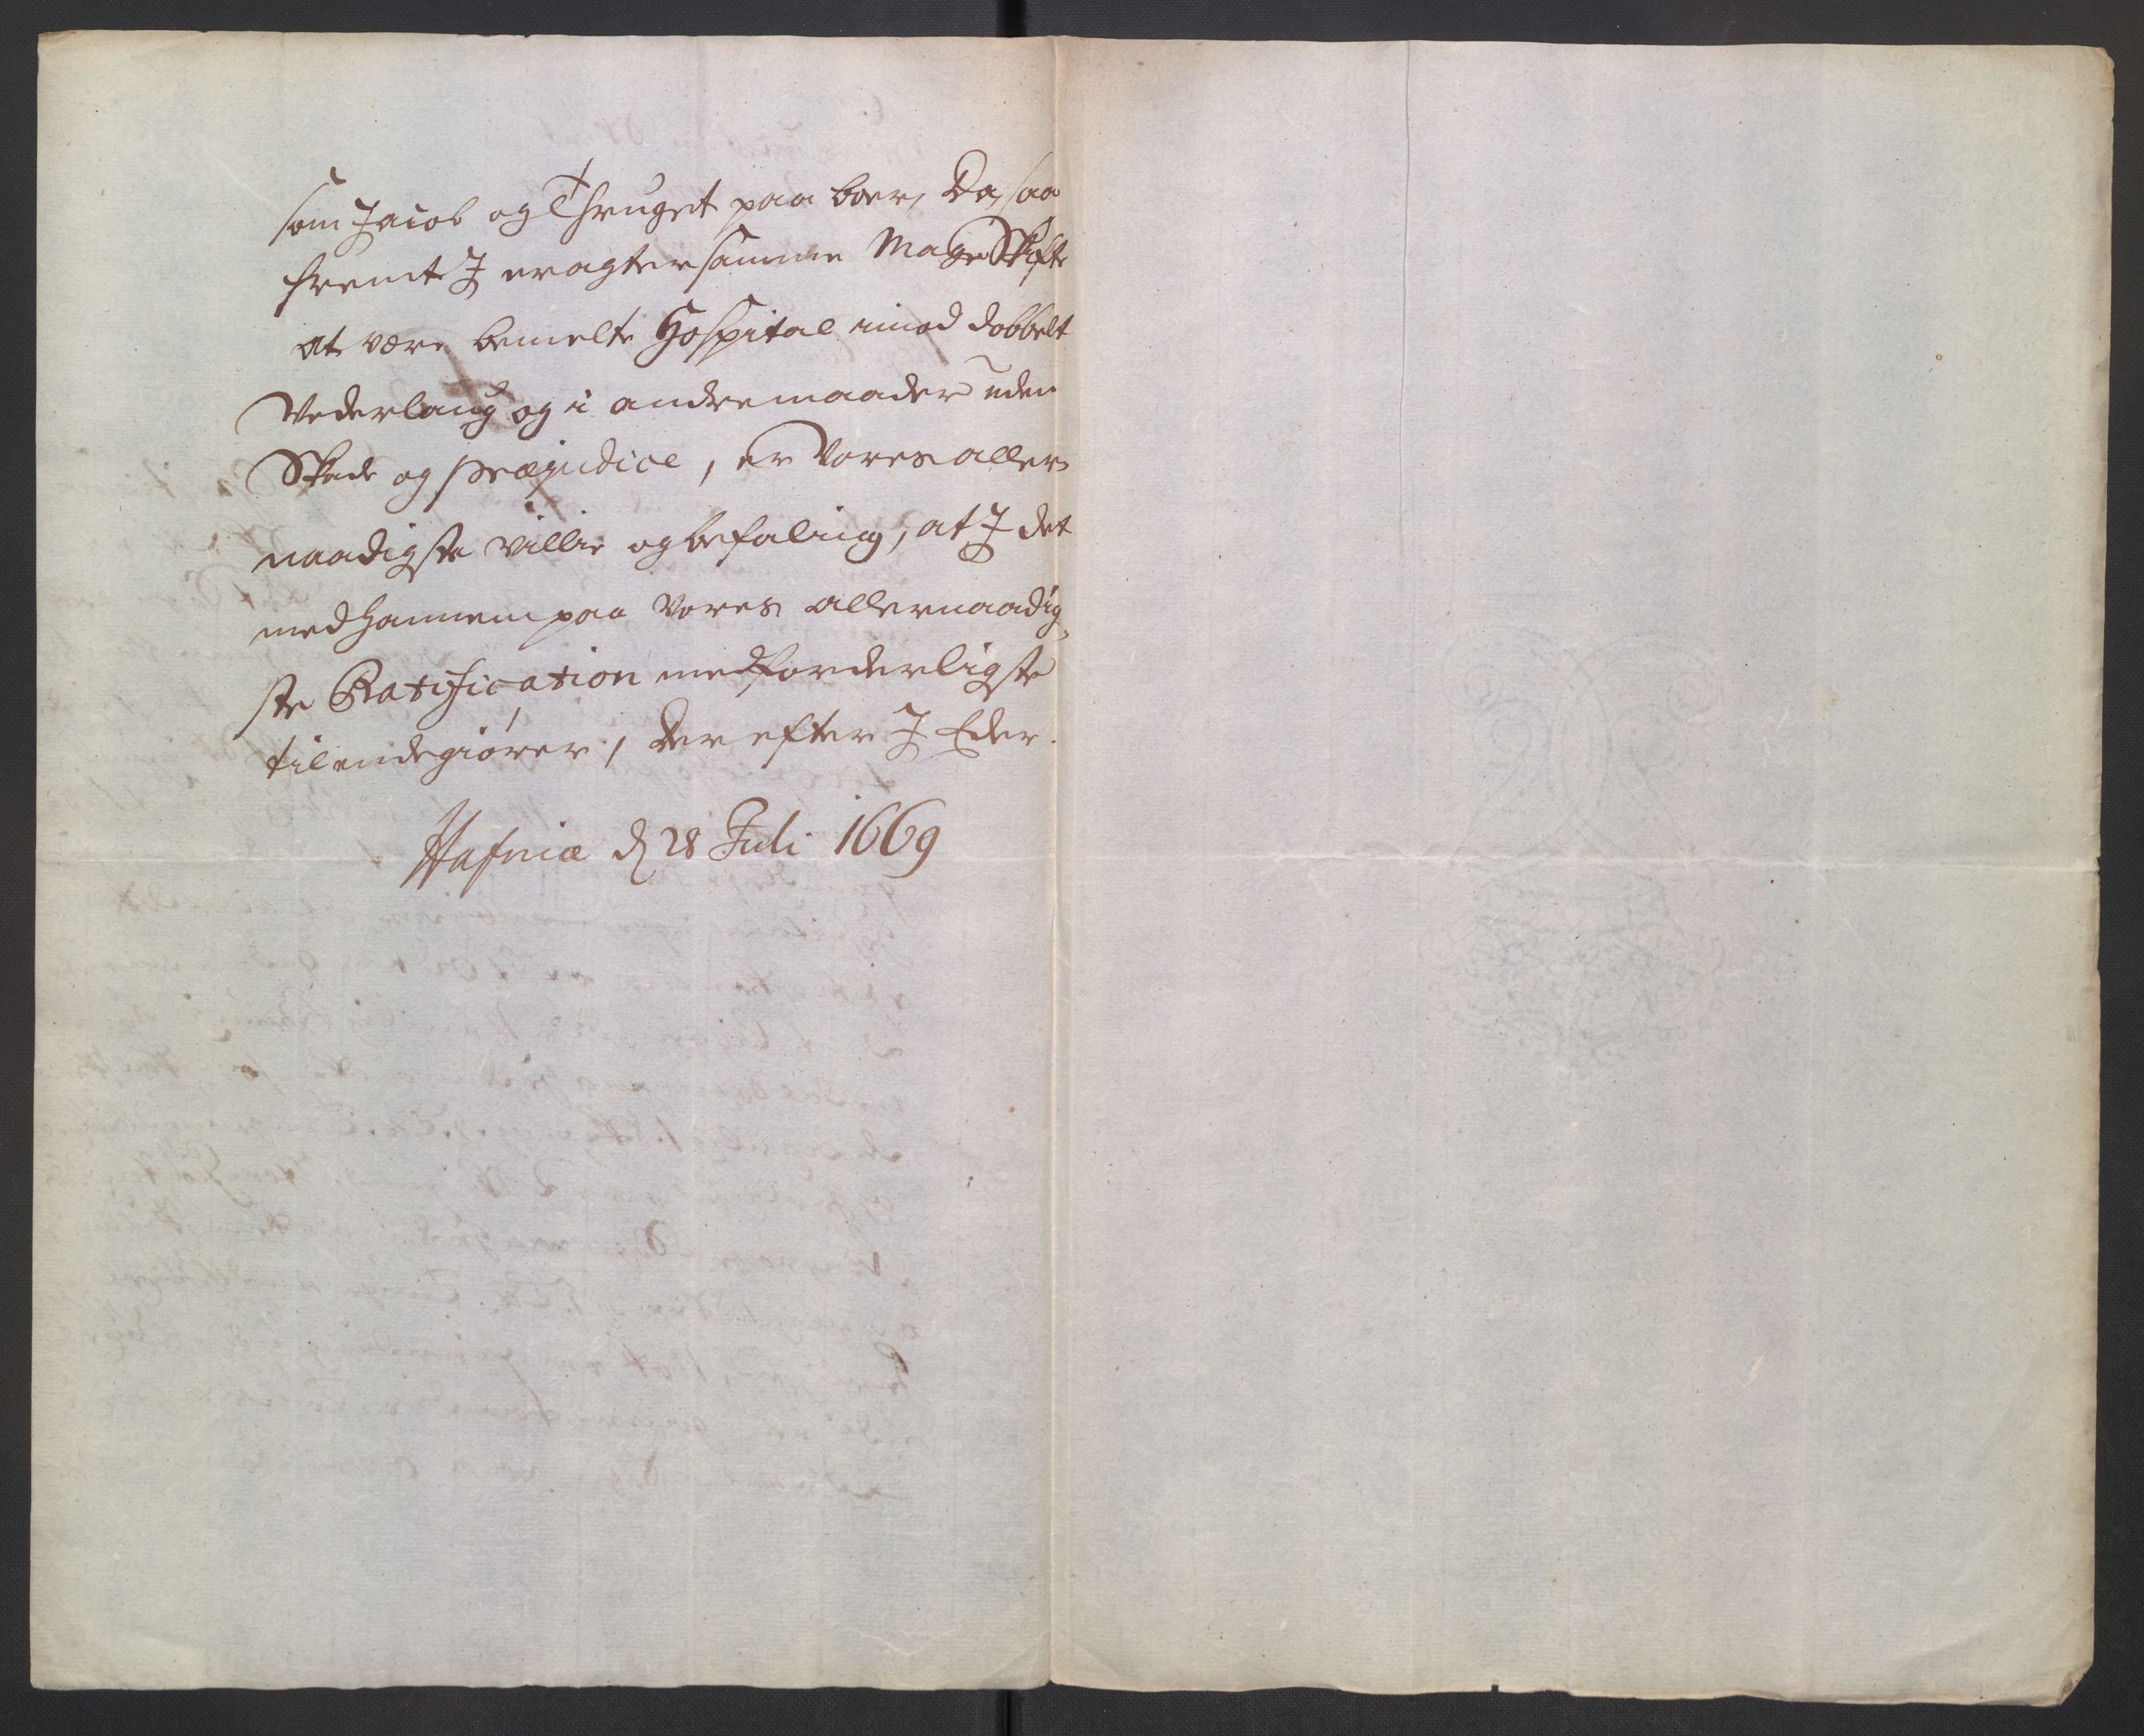 som Jacob og Thruget paa boer, Da, saa
fremt I eragter samme Mageskifte
at være bemelte Hospital imod dobbelt
Vederlaug og i andre maader uden
Skade og præjudice, er Vores aller
naadigste villie og befaling, at I det
med hannem paa Vores allernaadig,
ste Ratification med forderligste
tilendegiører, Der efter I Eder.
Hafniæ d 28 Juli 1669